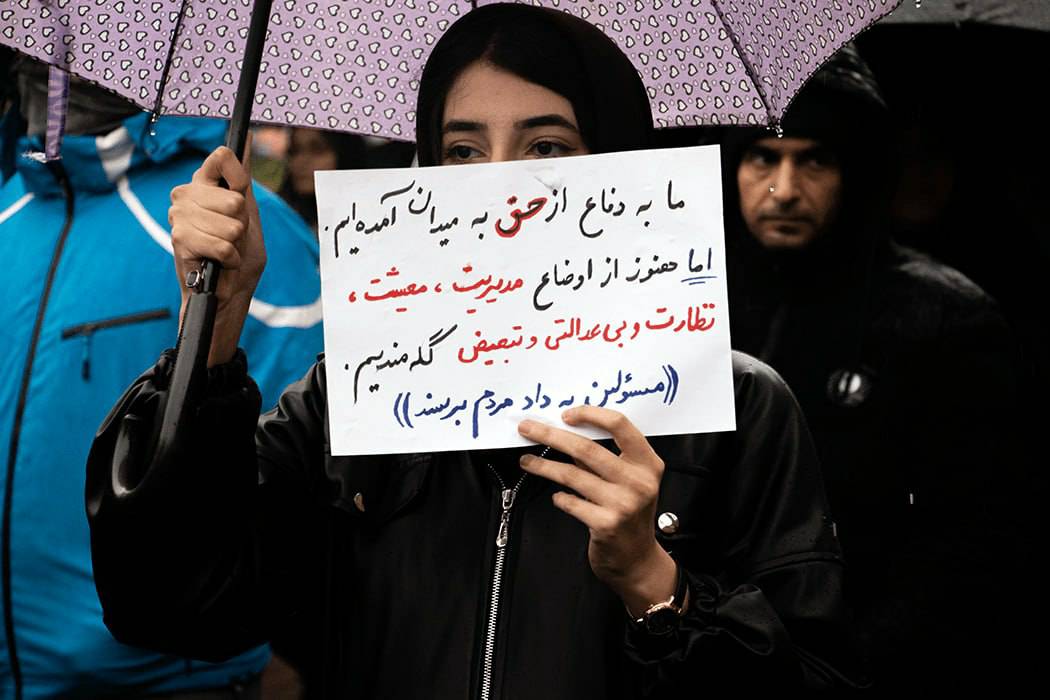 ما به دفاع از حق به میدان آمده‌ایم.
اما هنوز از اوضاع مدیریت، معیشت،
نظارت و بی‌عدالتی و تبعیض گله‌مندیم.
((مسئولین به داد مردم برسند))